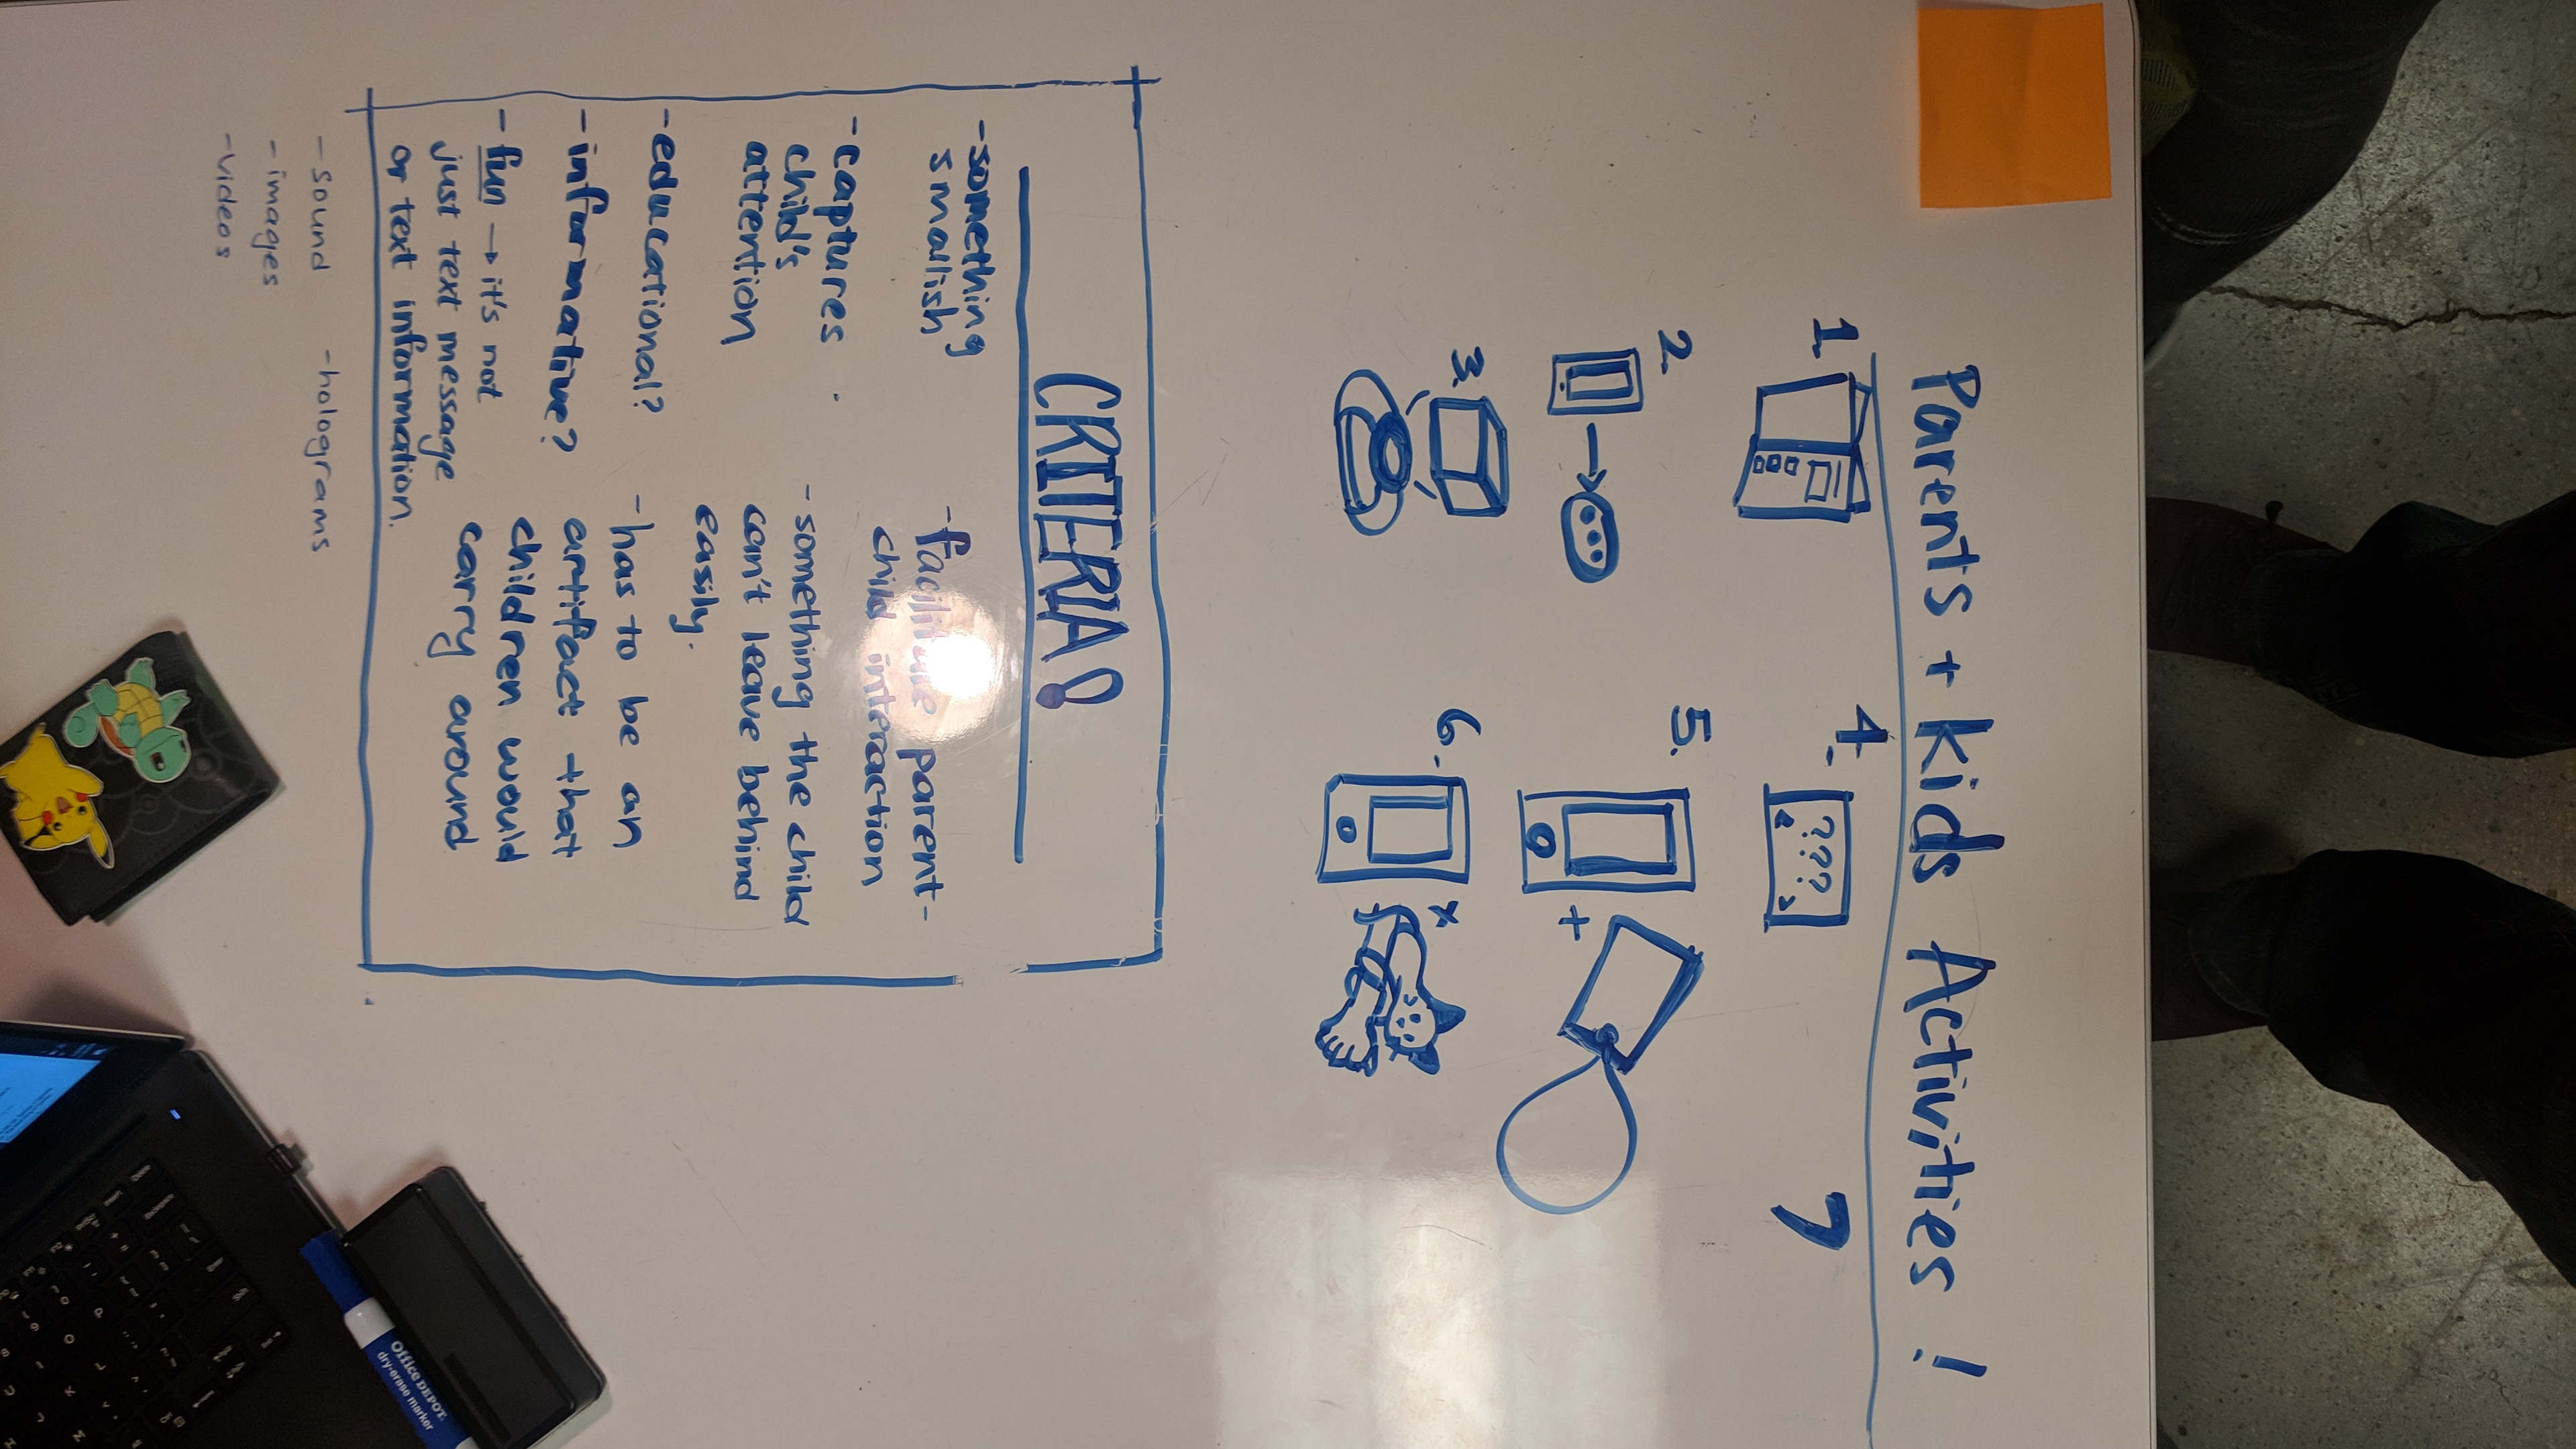 Parents + Kids Activities!
1.
2.
3.
4.
???
5.
+
6.
x
7
CRITERIA!
-something
smallish
-captures
child's
attention
-educational?
-informative?
-fun → it's not
just text message
or text information.
-facilitate parent-
child interaction
-something the child
can't leave behind
easily.
-has to be an
artifact that
children would
carry around
-sound
-images
-videos
-holograms
Office DEPOT.
dry-erase marker